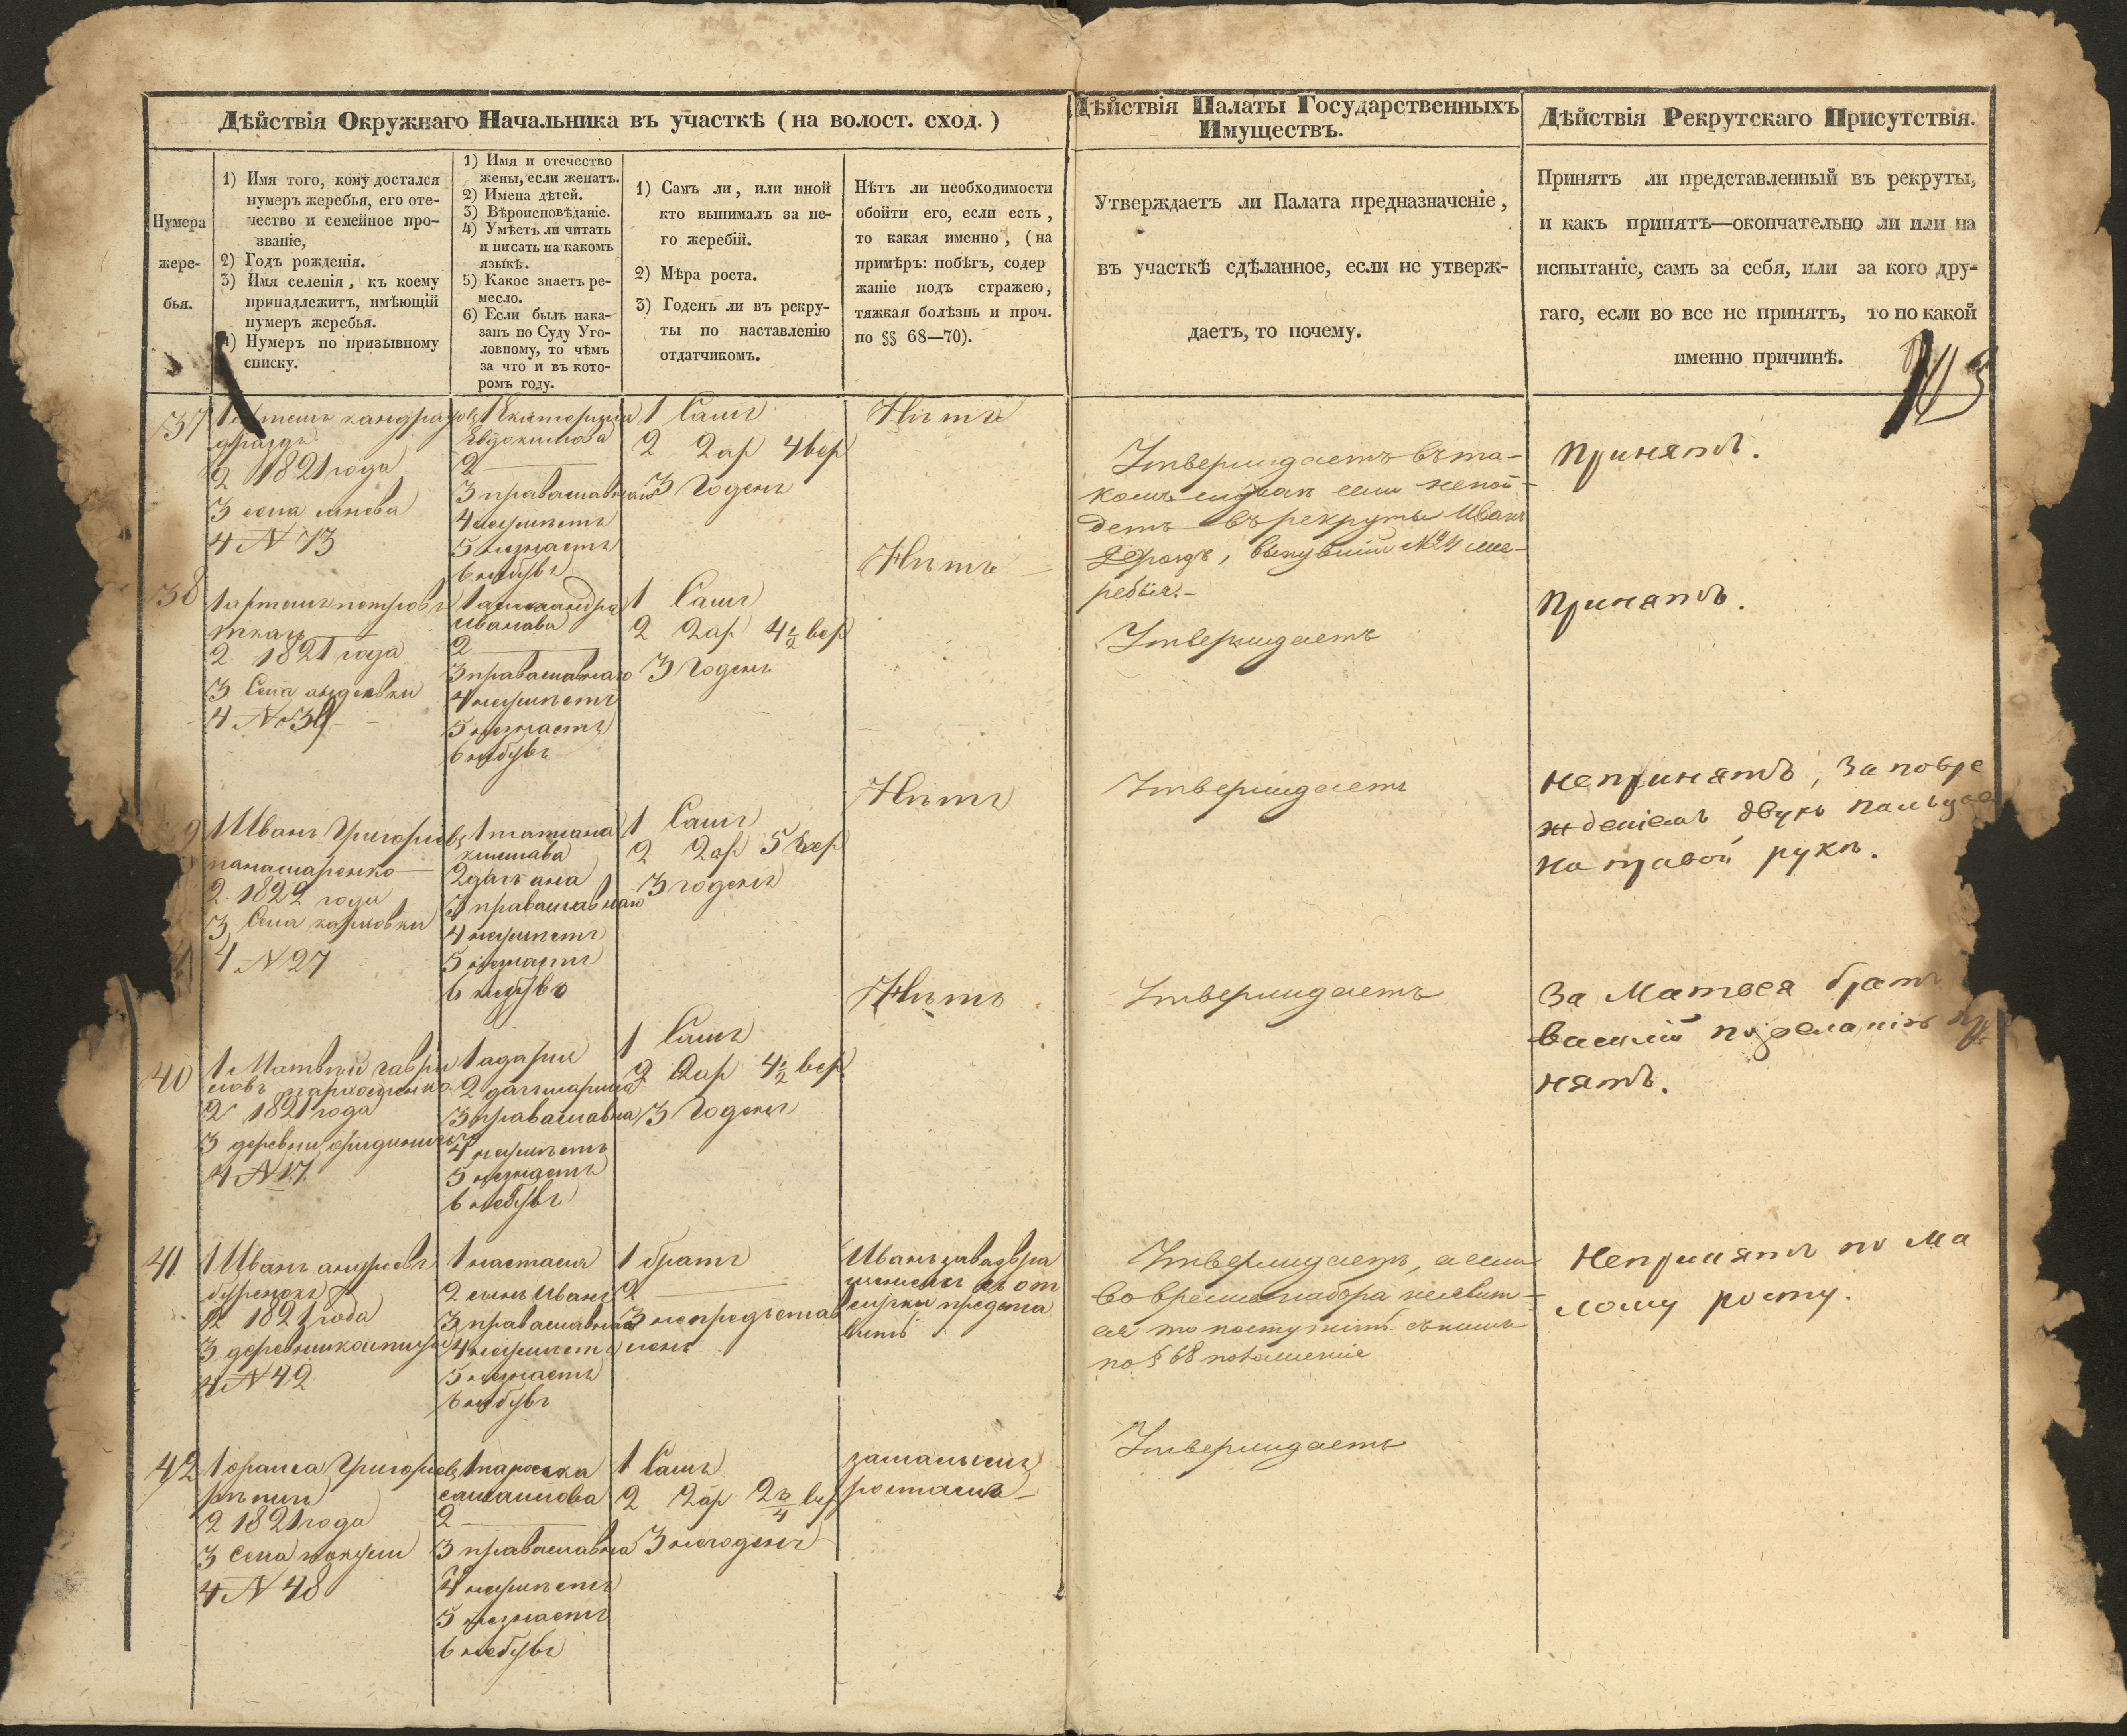 Дѣйствія Окружнаго Начальника въ участкѣ ( на волост. сход. )
Нумера
жере-
бья.
1) Имя того, кому достался
нумеръ жеребья, его оте-
чество и семейное про-
званіе,
2) Годъ рожденія.
3) Имя селенія, къ коему
принадлежитъ, имѣющій
нумеръ жеребья.
4) Нумеръ по призывному
списку.
1) Имя и отечество
жены, если женатъ.
2) Имена дѣтей.
3) Вѣроисповѣданіе.
4) Умѣетъ ли читать
и писать на какомъ
языкѣ.
5) Какое знаетъ ре-
месло.
6) Если былъ нака-
занъ по Суду Уго-
ловному, то чѣмъ
за что и въ кото-
ромъ году.
1) Самъ ли, или иной
кто вынималъ за не-
го жеребій.
2) Мѣра роста.
3) Годенъ ли въ рекру-
ты по наставленію
отдатчикомъ.
Нѣтъ ли необходимости
обойти его, если есть,
то какая именно, (на
примѣръ: побѣгъ, содер
жаніе подъ стражею,
тяжкая болѣзнь и проч.
по §§ 68—70).
Дѣйствія Палаты Государственныхъ
Имуществъ.
Утверждаетъ ли Палата предназначеніе,
въ участкѣ сдѣланное, если не утверж-
даетъ, то почему.
Дѣйствія Рекрутскаго Присутствія.
Принятъ ли представленный въ рекруты,
и какъ принятъ—окончательно ли или на
испытаніе, самъ за себя, или за кого дру-
гаго, если во все не принятъ, то по какой
именно причинѣ.
37
2 1821 года
3 села
4 N 73
1 Екатерина
Евдокимова
2
3 православнаго
4 неумѣетъ
5 незнаетъ
6 небувъ
1 Самъ
2 2 ар 4 вер
3 Годенъ
Нѣтъ
Утверждаетъ въ та-
комъ случаѣ если непой-
детъ въ рекруты Иванъ
вынувшій №24 же-
ребья.-
Принятъ.
38
1 артемъ петровъ
ткачъ
2 1821 года
3 Села
4 N 39
1 александра
Иванава
2
3 православнаго
4 неумѣетъ
5 незнаетъ
6 небувъ
1 Самъ
2 2 ар 4 1/2 вер
3 Годенъ
Нѣтъ
Утверждаетъ
Принятъ.
9
1 Иванъ Григорьевъ
панамаренко
2 1822 года
3 Села карловки
4 N 27
1 татиана
2 дачь ана
3 православнаго
4 неумѣетъ
5 незнаетъ
6 небувъ
1 Самъ
2 2 ар 5 вер
3 годенъ
Нѣтъ
Утверждаетъ
Непринятъ, За повре
жденіемъ двухъ пальцев
на правой рукѣ.
40
1 Матвѣй гаври
ловъ пархоменко
2 1821 года
3 деревни
4 N 17
1 адария
2 дачь марина
3 православна
4 неумѣетъ
5 незнаетъ
6 небувъ
1 Самъ
2 2 ар 4 1/2 вер
3 Годенъ
Нѣтъ
Утверждаетъ
За Матвея братъ
василій по желанію при
нятъ.
41
1 Иванъ андреевъ
2 1821 года
3 деревни
4 N 42
1 настасия
2 сынъ Иванъ
3 православнаго
4 неумѣетъ
5 незнаетъ
6 небувъ
1 братъ
2
3 непредъстав
ленъ
Иванъ
отлучки предста
вить
Утверждаетъ, а если
во время набора неявит-
ся то поступить съ нимъ
по § 68
Непринятъ по Ма
лому росту.
42
Григорьевъ
2 1821 года
3 Села
4 N 48
2
3 православна
го
4 неумѣетъ
5 незнаетъ
6 небувъ
1 Самъ
2 2 ар 2 3/4 вер
3 негоденъ
замалымъ
ростомъ
Утверждаетъ